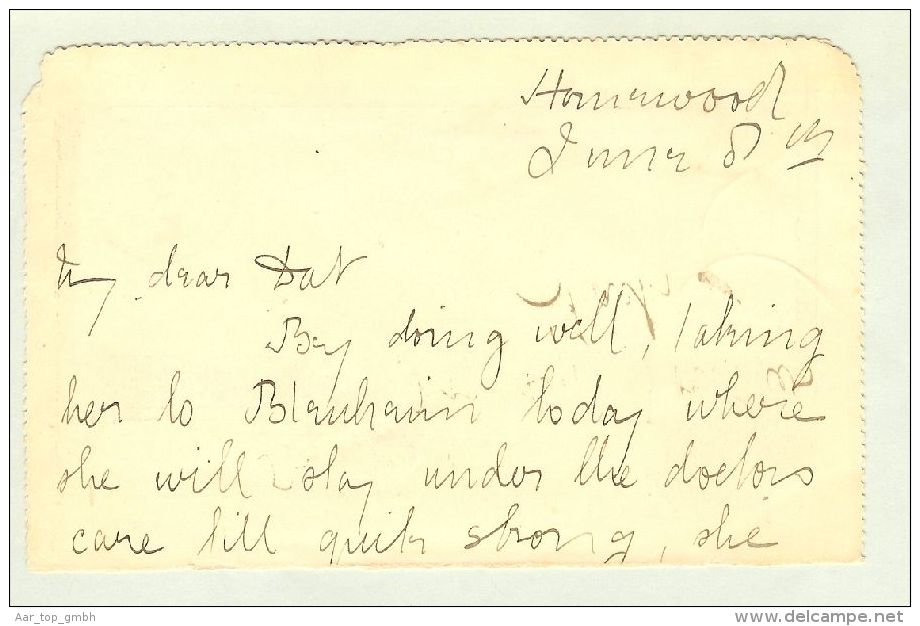 Homewood
June 8th
My dear Dat
Bay doing well, taking
her to Blenheim today where
she will stay under the doctors
care till quite strong, she
Aar_top_gmbh
delcampe.net